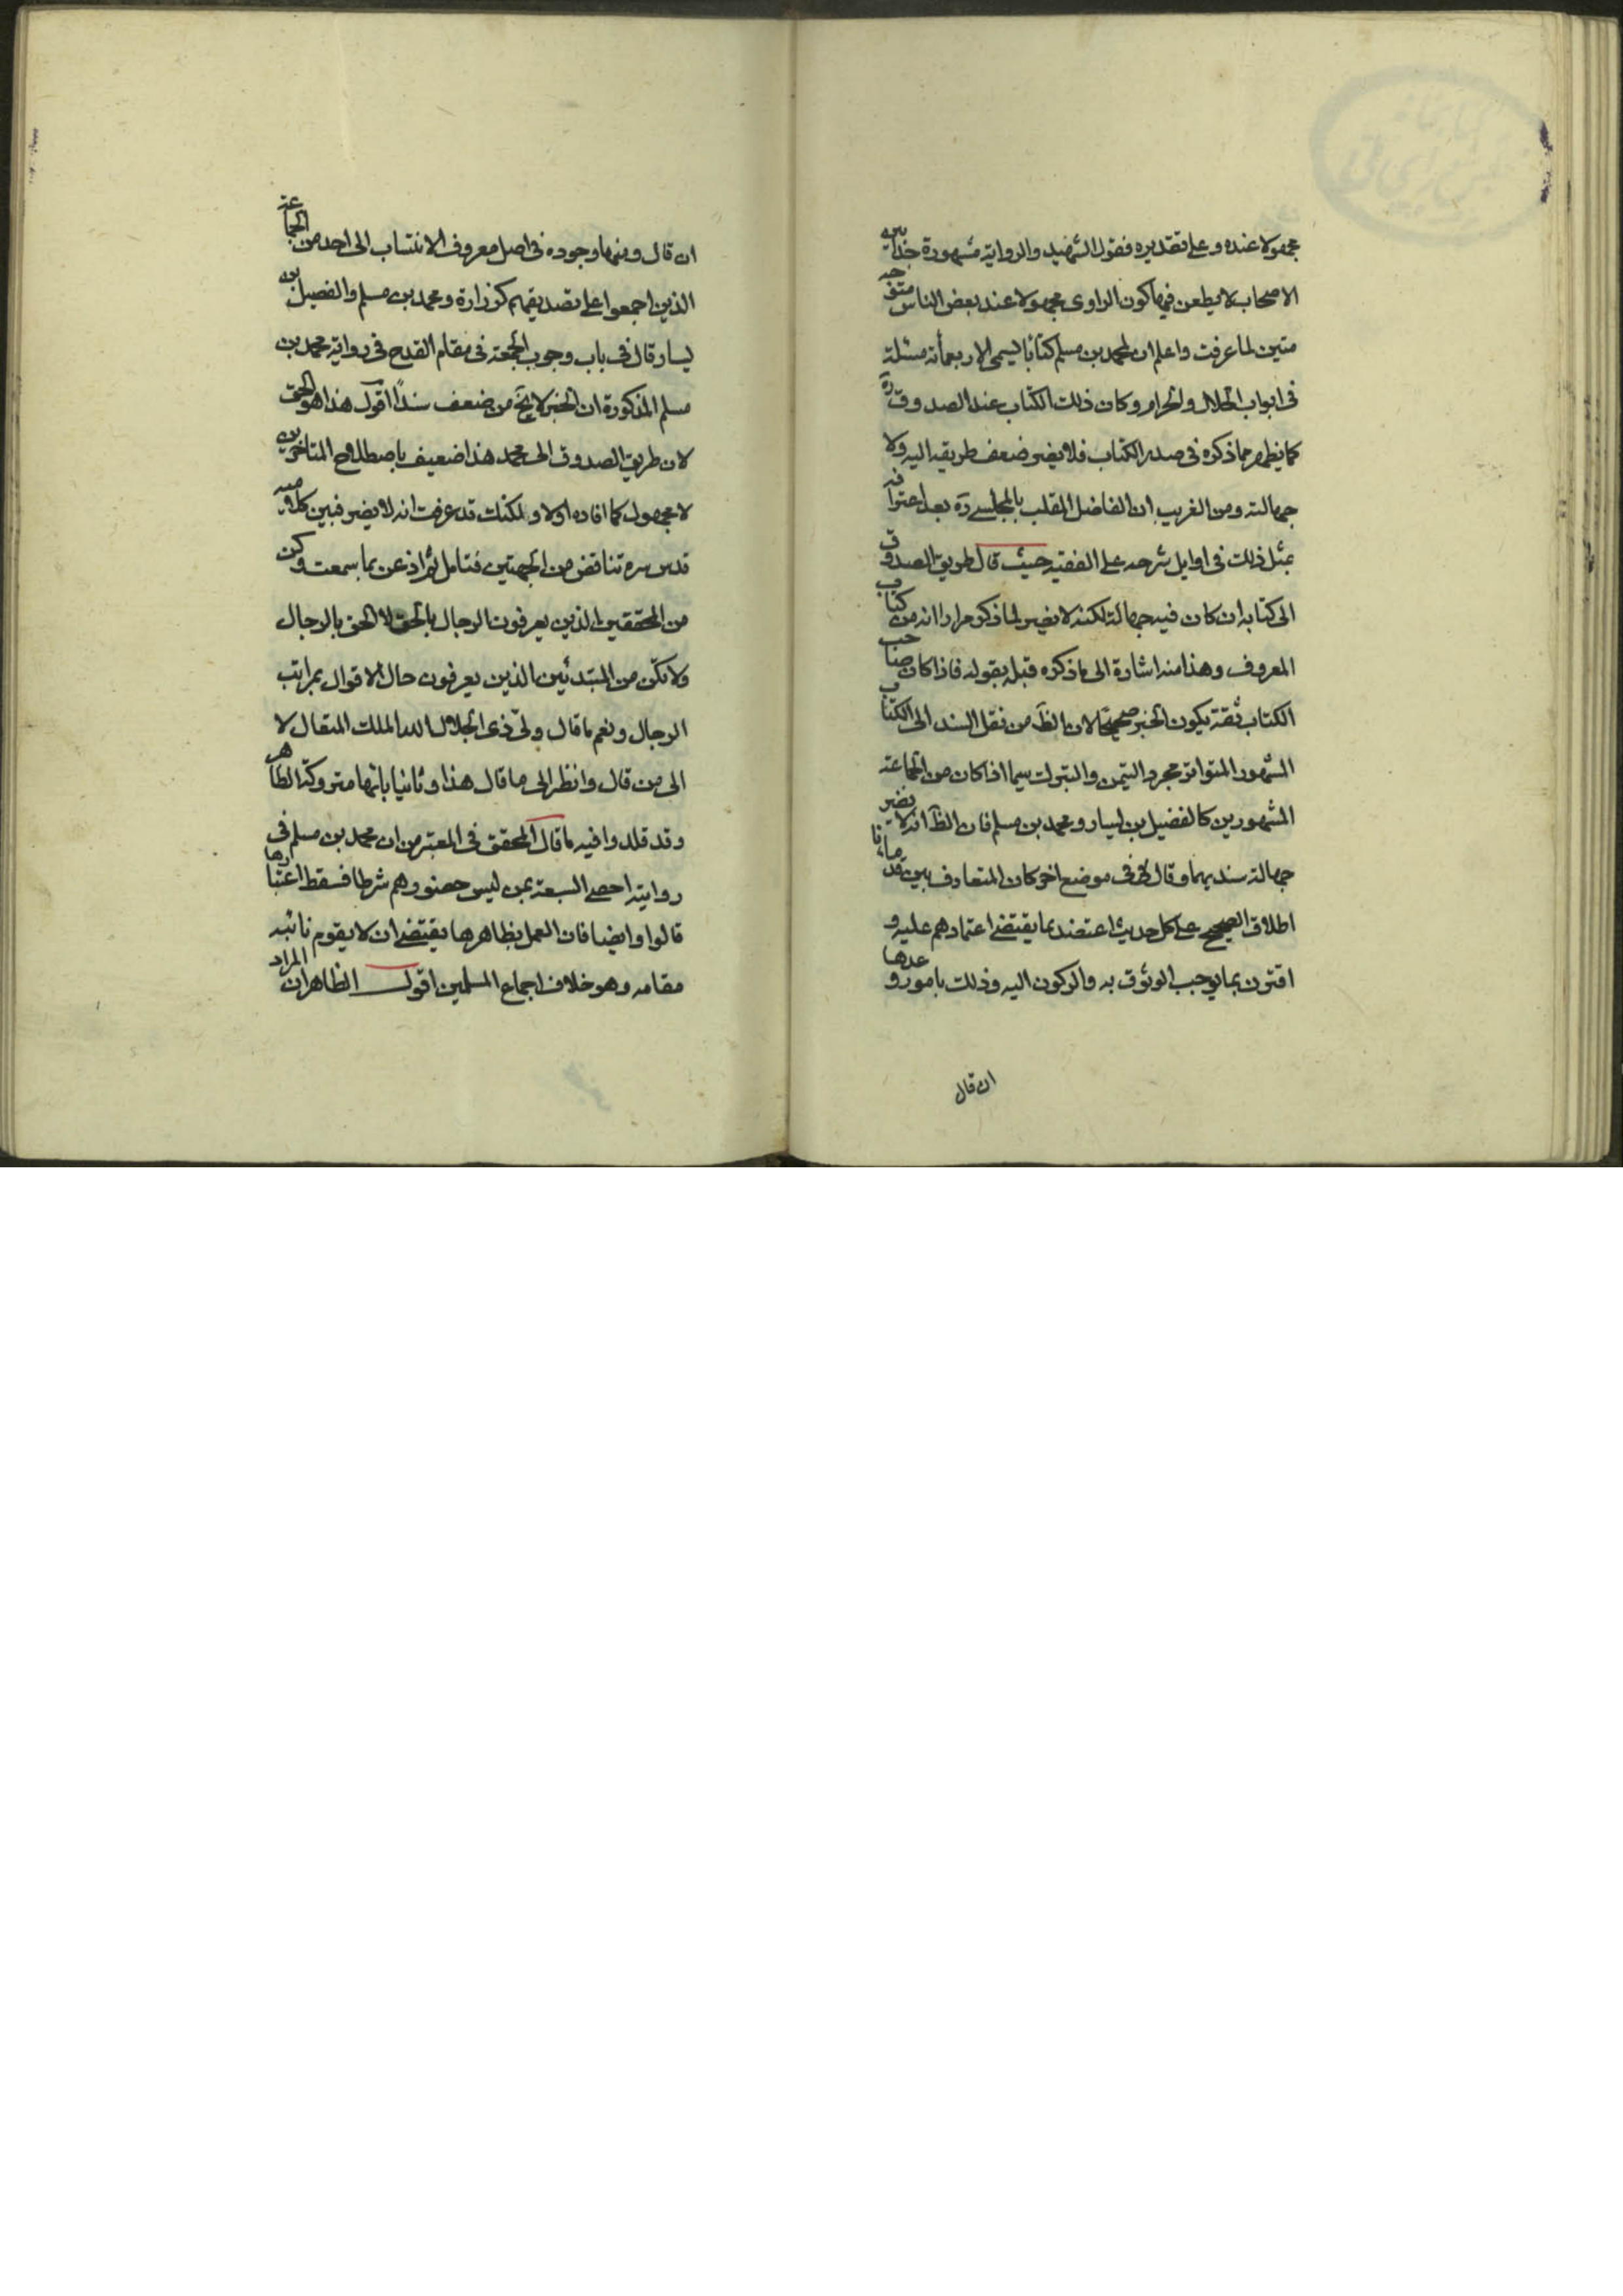 مجهولا عنده وعلى تقديره فقول الشهيد والرواية مشهورة بين
الاصحاب لا يطعن فيها كون الراوى مجهولا عند بعض الناس متوجه
متين لما عرفت واعلم ان لمحمد بن مسلم كتابا يسمى الاربعمأئة مسئلة
فى ابواب الحلال والحرام وكان ذلك الكتاب عند الصدوق ره
كما يظهر مما ذكره فى صدر الكتاب فلا يضر ضعف طريقه اليه ولا
جهالته ومن الغريب ان الفاضل الملقب بالمجلسى ره بعد اعترافه
بمثل ذلك فى اوايل شرحه على الفقيه حيث قال طريق الصدوق
الى كتابه ان كان فيه جهالة لكنه لا يضر لما ذكر مرارا انه من كتاب
المعروف وهذا منه اشارة الى ما ذكره قبله بقوله فاذا كان صاحب
الكتاب ثقة يكون الخبر صحيحا لان الظ من نقل السند الى الكتاب
المشهور المتواتر مجرد التيمن والتبرك سيما اذا كان من الجماعة
المشهورين كالفضيل بن يسار ومحمد بن مسلم فان الظ انه لا يضر
جهالة سنديهما وقال فى موضع اخر كان المتعارف بين قدمائنا
اطلاق الصحيح على كل حديث اعتضد بما يقتضى اعتمادهم عليه و
اقترن بما يوجب الوثوق به والركون اليه وذلك بامور وعدها
ان قال
ان قال ومنها وجوده فى اصل معروف الانتساب الى احد من الجماعة
الذين اجمعوا على تصديقهم كزرارة ومحمد بن مسلم والفضيل بن
يسار وقال فى باب وجوب الجمعة فى مقام القدح فى رواية محمد بن
مسلم المذكورة ان الخبر لا يخ من ضعف سندًا اقول هذا هو الحق
لان طريق الصدوق الى محمد هذا ضعيف باصطلاح المتاخرين
لا مجهول كما افاده اولا ولكنك قد عرفت انه لا يضر فبين كلاميه
قدس سره تناقض من الجهتين فتامل ثم اذعن بما سمعت وكن
من المحققين الذين يعرفون الرجال بالحق لا الحق بالرجال
ولا تكن من المبتدئين الذين يعرفون حال الاقوال بمراتب
الرجال ونعم ما قال ولى ذى الجلال الله الملك المتعال لا
الى من قال وانظر الى ما قال هذا وثانيا بانها متروكة الظاهر
وقد قلدوا فيه ما قال المحقق فى المعتبر من ان محمد بن مسلم فى
روايته احصى السبعة بمن ليس حضورهم شرطا فسقط اعتبارها
قالوا وايضا فان العمل بظاهرها يقتضى ان لا يقوم نائبه
مقامه وهو خلاف اجماع المسلمين اقول الظاهر ان المراد